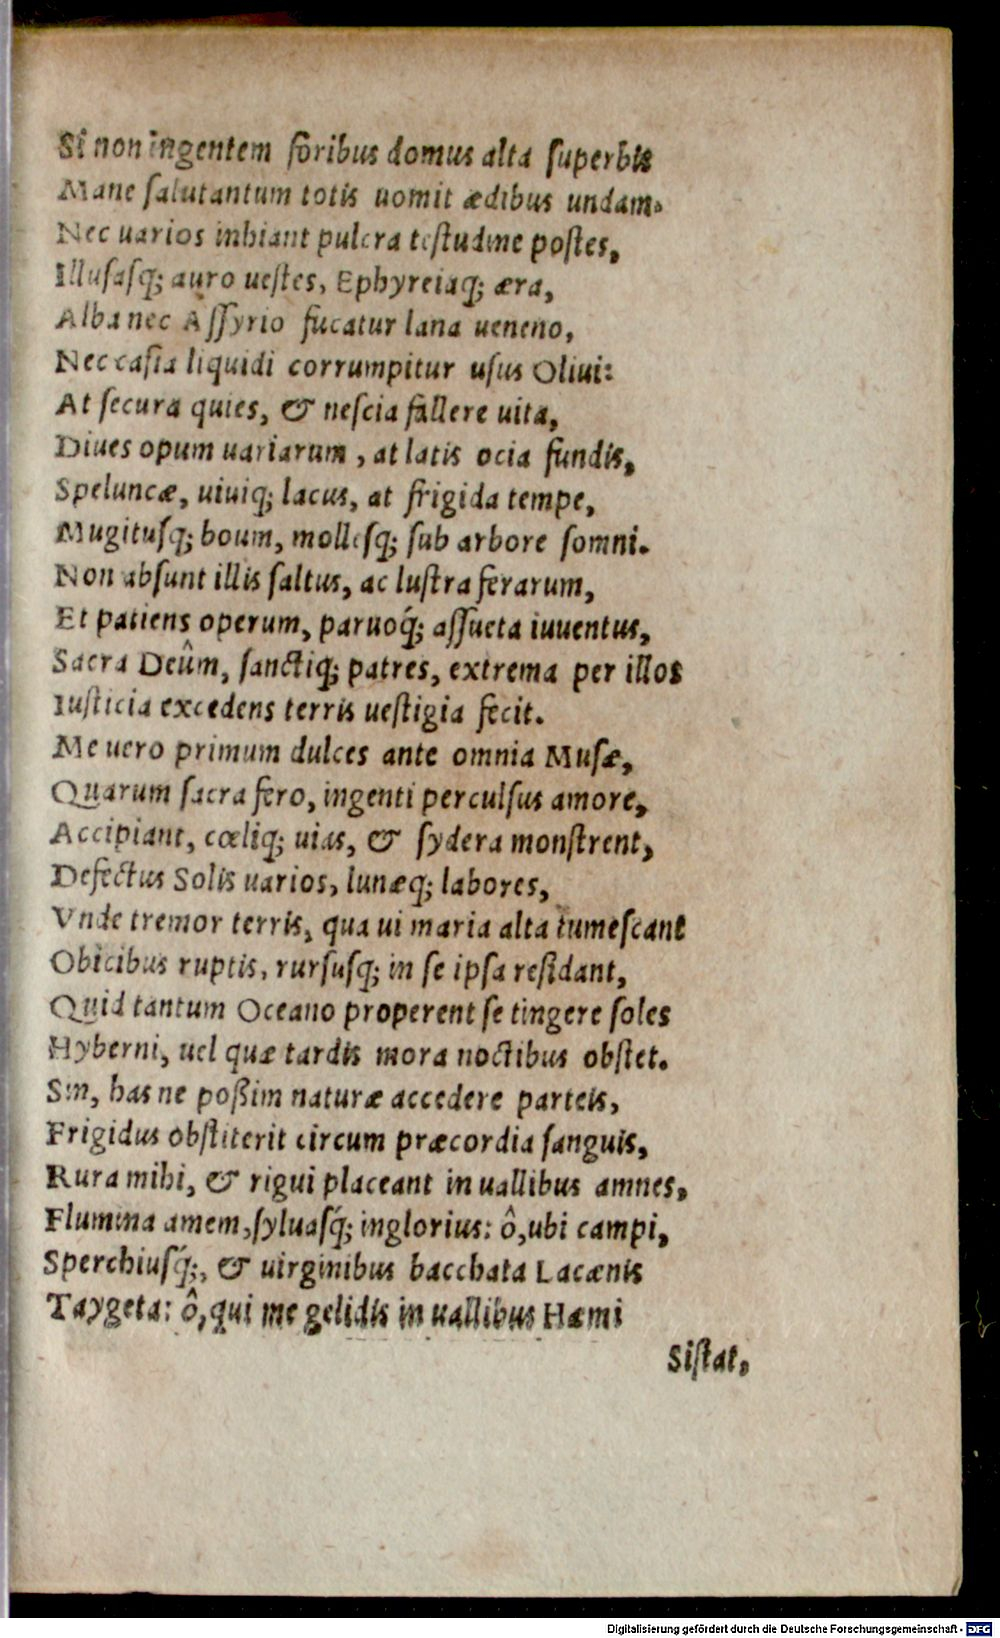 Si non ingentem foribus domus alta superbis
Mane salutantum totis uomit ædibus undam.
Nec uarios inhiant pulcra testudine postes,
Illusasq; auro uestes, Ephyreiaq; æra,
Alba nec Aſſyrio fucatur lana ueneno,
Nec casia liquidi corrumpitur usus Oliui:
At secura quies, & nescia fallere uita,
Diues opum uariarum, at latis ocia fundis,
Speluncæ, uiuiq; lacus, at frigida tempe,
Mugitusq; boum, mollesq; sub arbore somni.
Non absunt illis saltus, ac lustra ferarum,
Et patiens operum, paruoq́; aſſueta iuuentus,
Sacra Deûm, sanctiq; patres, extrema per illos
Iusticia excedens terris uestigia fecit.
Me uero primum dulces ante omnia Musæ,
Quarum sacra fero, ingenti perculsus amore,
Accipiant, cœliq; uias, & sydera monstrent,
Defectus Solis uarios, lunæq; labores,
Vnde tremor terris, qua ui maria alta tumescant
Obicibus ruptis, rursusq; in se ipsa residant,
Quid tantum Oceano properent se tingere soles
Hyberni, uel quæ tardis mora noctibus obstet.
Sin, has ne poßim naturæ accedere parteis,
Frigidus obstiterit circum præcordia sanguis,
Rura mihi, & rigui placeant in uallibus amnes,
Flumina amem, syluasq́; inglorius: ô, ubi campi,
Sperchiusq́;, & uirginibus bacchata Lacænis
Taygeta: ô, qui me gelidis in uallibus Hæmi
Sistat,
Digitalisierung gefördert durch die Deutsche Forschungsgemeinschaft - DFG